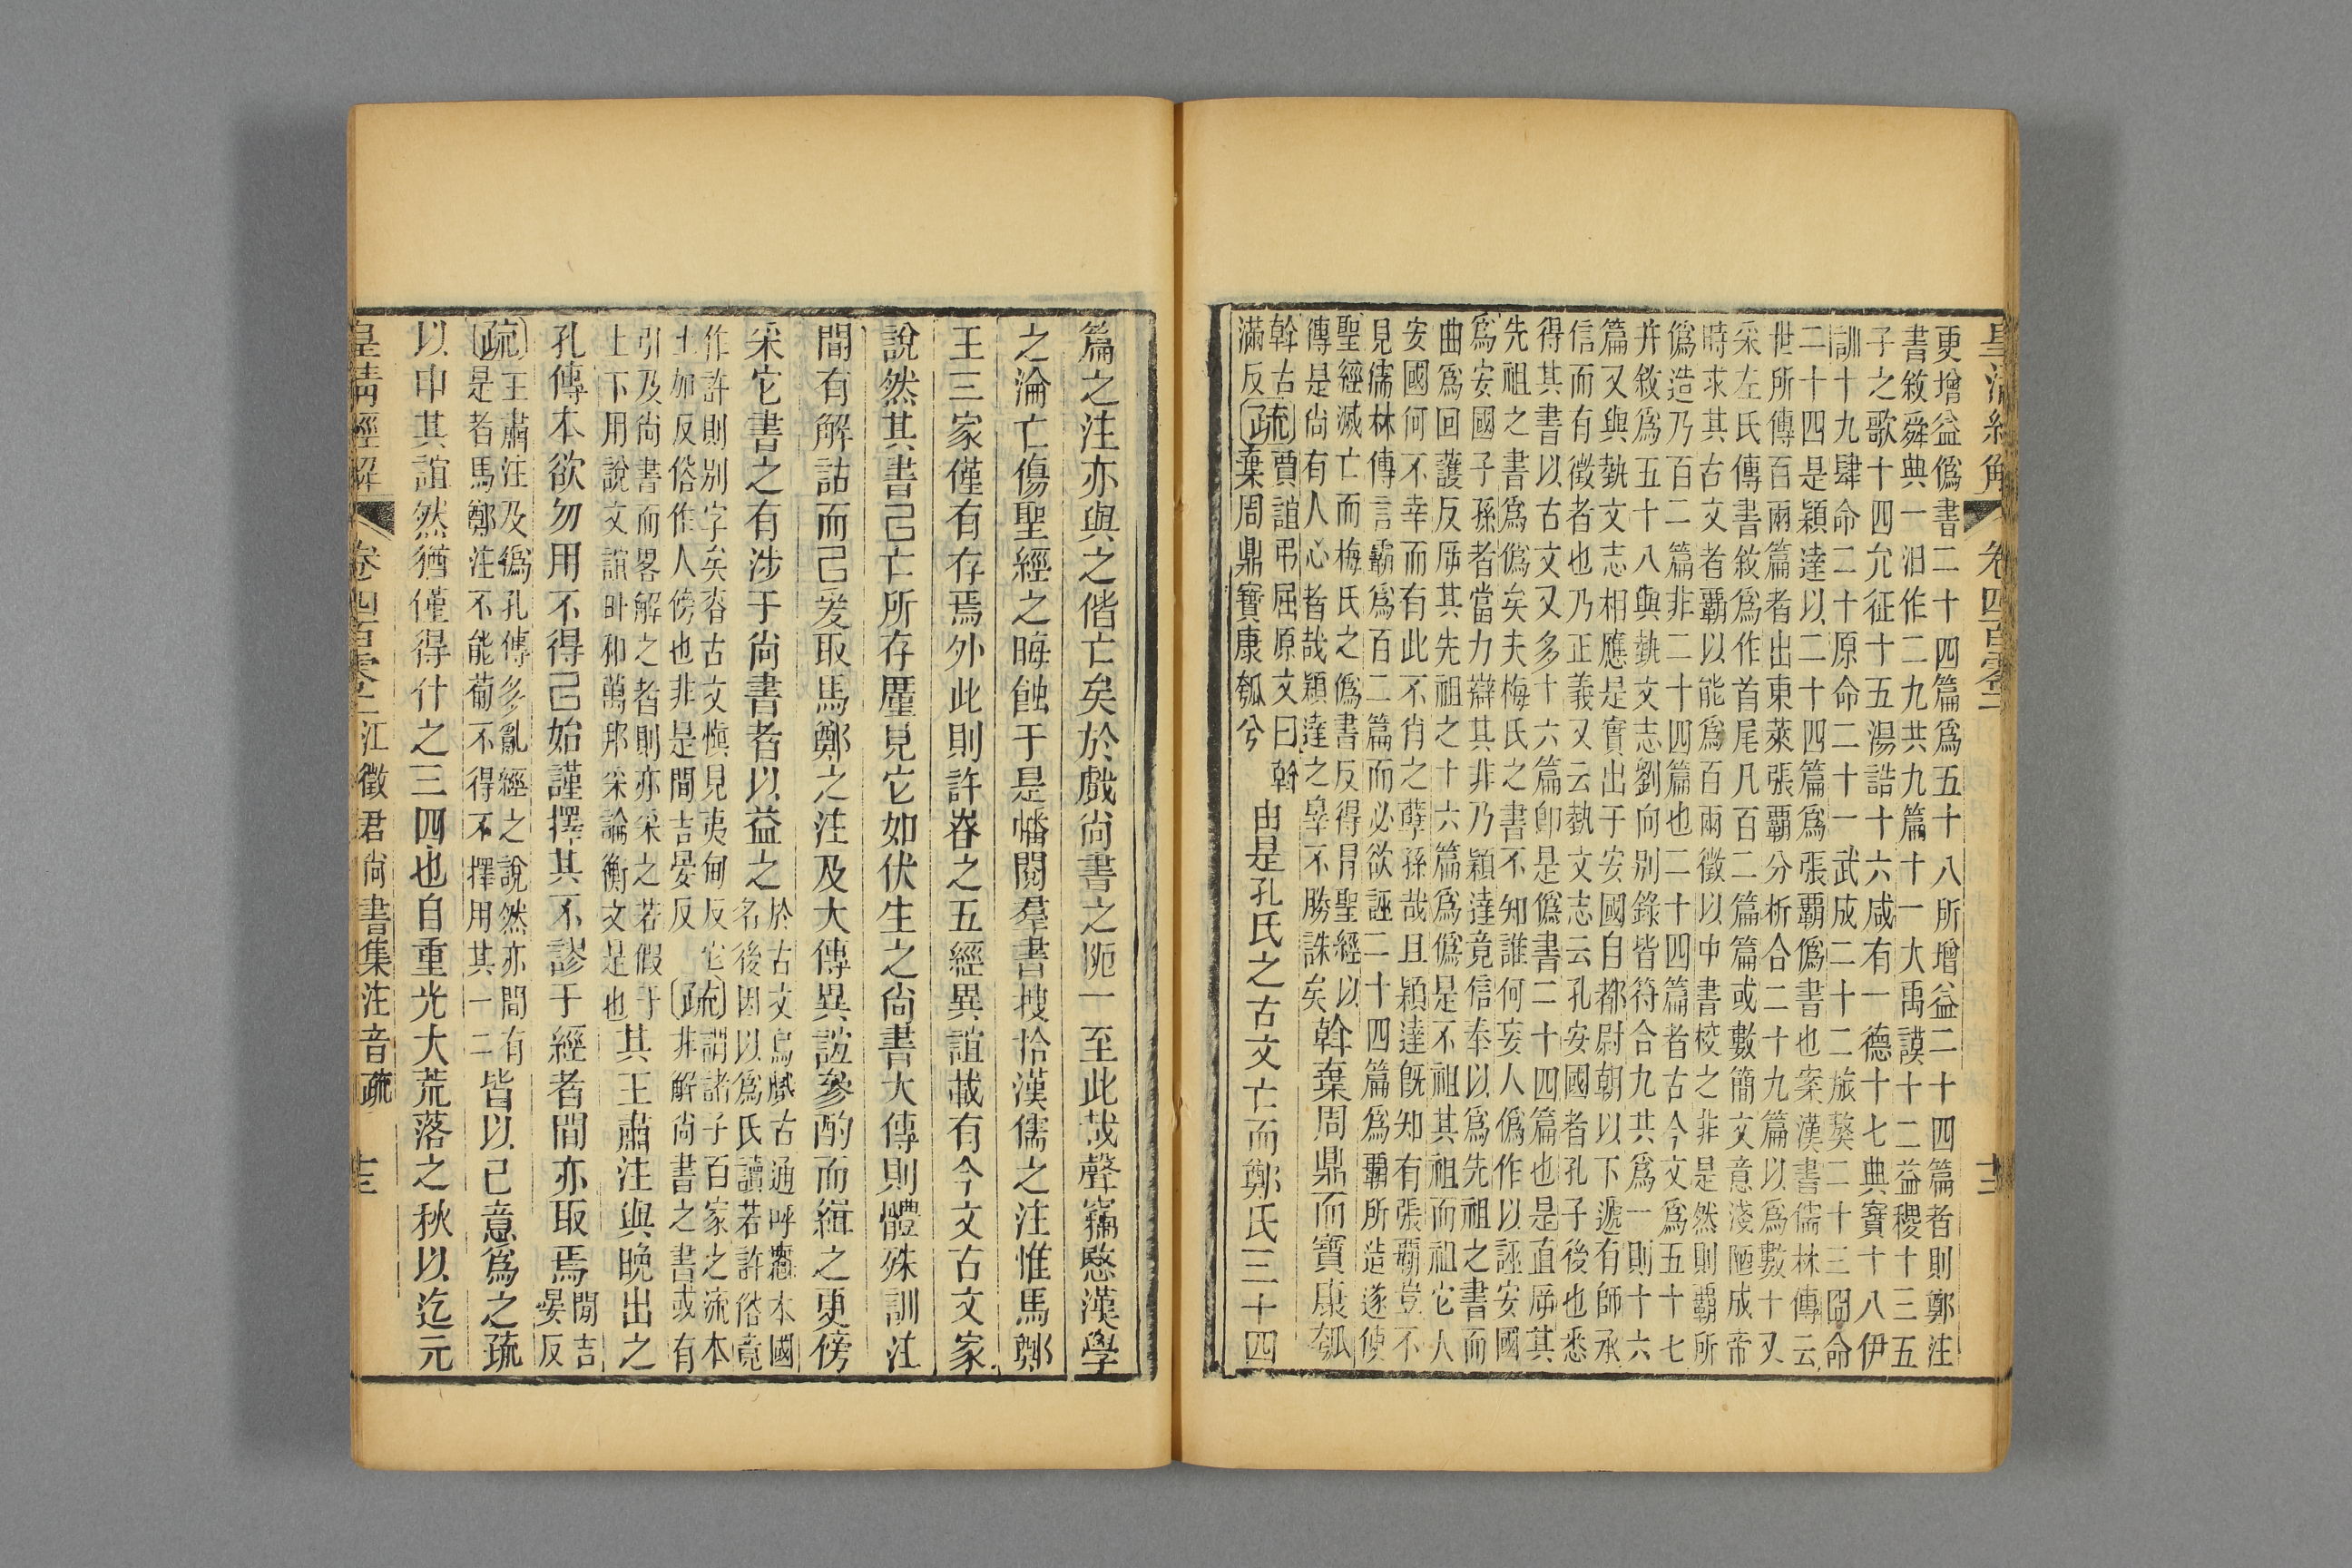 皇清經解
卷四百零二
十二
更增益僞書二十四篇爲五十八所增益二十四篇者則鄭注
書敘舜典一汨作二九共九篇十一大禹謨十二益稷十三五
子之歌十四允征十五湯誥十六咸有一德十七典寶十八伊
訓十九肆命二十原命二十一武成二十二旅獒二十三冏命
二十四是穎達以二十四篇爲張霸僞書也案漢書儒林傳云
世所傳百兩篇者出東萊張霸分析合二十九篇以爲數十又
采左氏傳書敘爲作首尾凡百二篇篇或數簡文意淺陋成帝
時求其古文者霸以能爲百兩徵以中書校之非是然則霸所
僞造乃百二篇非二十四篇也二十四篇者古今文爲五十七
幷敘爲五十八與埶文志劉向別錄皆符合九共爲一則十六
篇又與埶文志相應是實出于安國自都尉朝以下遞有師承
信而有徵者也乃正義又云埶文志云孔安國者孔子後也悉
得其書以古文又多十六篇卽是僞書二十四篇也是直厈其
先祖之書爲僞矣夫梅氏之書不知誰何妄人僞作以誣安國
爲安國子孫者當力辯其非乃穎達竟信奉以爲先祖之書而
曲爲回護反厈其先祖之十六篇爲僞是不祖其祖而祖它人
安國何不幸而有此不肖之孽孫哉且穎達旣知有張霸豈不
見儒林傳言霸爲百二篇而必欲誣二十四篇爲霸所造遂使
聖經滅亡而梅氏之僞書反得冒聖經以
傳是尚有人心者哉穎達之辠不勝誅矣
斡棄周鼎而寶康瓠
斡古
滿反
疏
賈誼弔屈原文曰斡
棄周鼎寶康瓠兮
由是孔氏之古文亡而鄭氏三十四
篇之注亦與之偕亡矣於戲尚書之阸一至此哉聲竊愍漢學
之淪亡傷聖經之晦蝕于是幡閱羣書搜拾漢儒之注惟馬鄭
王三家僅有存焉外此則許眘之五經異誼載有今文古文家
說然其書已亡所存厪見它如伏生之尚書大傳則體殊訓注
間有解詁而已爰取馬鄭之注及大傳異誼參酌而緝之更傍
采它書之有涉于尚書者以益之
於古文烏戲古通呼憗本國
名後因以爲氏讀若許俗竟
作許則別字矣眘古文愼見夷甸反它
土加反俗作人傍也非是間吉晏反
疏
謂諸子百家之流本
非解尚書之書或有
引及尚書而畧解之者則亦采之若假于
上下用說文誼𠧩和萬邦采論衡文是也
其王肅注與晚出之
孔傳本欲勿用不得已始謹擇其不謬于經者間亦取焉
閒吉
晏反
疏
王肅注及僞孔傳多亂經之說然亦間有
是者馬鄭注不能葡不得不擇用其一二
皆以己意爲之疏
以申其誼然猶僅得什之三四也自重光大荒落之秋以迄元
皇清經解
卷四百零二
江徵君尚書集注音疏
十三